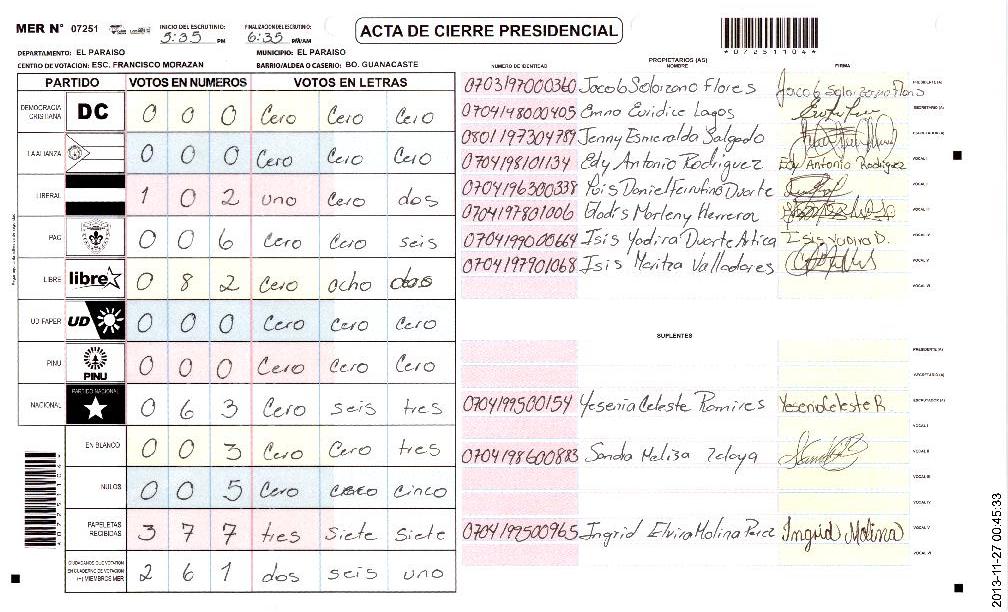 MER N° 07251 INICIO DEL ESCRUTINIO: 5:35 PM FINALIZACION DEL ESCRUTINIO: 6:35 PM/AM
ACTA DE CIERRE PRESIDENCIAL
*07251104*
DEPARTAMENTO: EL PARAISO MUNICIPIO: EL PARAISO
CENTRO DE VOTACION: ESC. FRANCISCO MORAZAN BARRIO/ALDEA O CASERIO: BO. GUANACASTE
PARTIDO VOTOS EN NUMEROS VOTOS EN LETRAS
DEMOCRACIA CRISTIANA DC 0 0 0 Cero Cero Cero
LA ALIANZA 0 0 0 Cero Cero Cero
LIBERAL 1 0 2 uno Cero dos
PAC 0 0 6 Cero Cero seis
LIBRE libre 0 8 2 Cero ocho dos
UD FAPER UD 0 0 0 Cero Cero Cero
PINU PINU 0 0 0 Cero Cero Cero
NACIONAL PARTIDO NACIONAL 0 6 3 Cero seis tres
EN BLANCO 0 0 3 Cero Cero tres
NULOS 0 0 5 Cero Cinco
PAPELETAS RECIBIDAS 3 7 7 tres siete siete
CIUDADANOS QUE VOTARON EN CUADERNO DE VOTACION (+) MIEMBROS MER 2 6 1 dos seis uno
*07251104*
PROPIETARIOS (AS)
NUMERO DE IDENTIDAD NOMBRE FIRMA
0703197000360 Jacob Solorzano Flores Jacob Solorzano Flores PRESIDENTE (A)
0704148000405 Emno Euridice Lagos SECRETARIO (A)
0801197304789 Jenny Esmeralda Salgado ESCRUTADOR (A)
0704198101134 Edy Antonio Rodriguez Edy Antonio Rodriguez VOCAL I
0704196300338 Daniel Ferrufino Duarte
0704197801006 Gladis Marleny Herrera VOCAL III
0704199000664 Isis Yadira Duarte Artica Isis Yadira D. VOCAL IV
0704197901068 Isis Maritza Valladares VOCAL V
VOCAL VI
SUPLENTES
PRESIDENTE (A)
SECRETARIO (A)
0704199500154 Yesenia Celeste Ramires Yesenia Celeste R. ESCRUTADOR (A)
VOCAL I
0704198600883 Sandra Meliza Zelaya VOCAL II
VOCAL III
VOCAL IV
0704199500965 Ingrid Elvira Molina Perez Ingrid Molina VOCAL V
VOCAL VI
2013-11-27 00:45:33